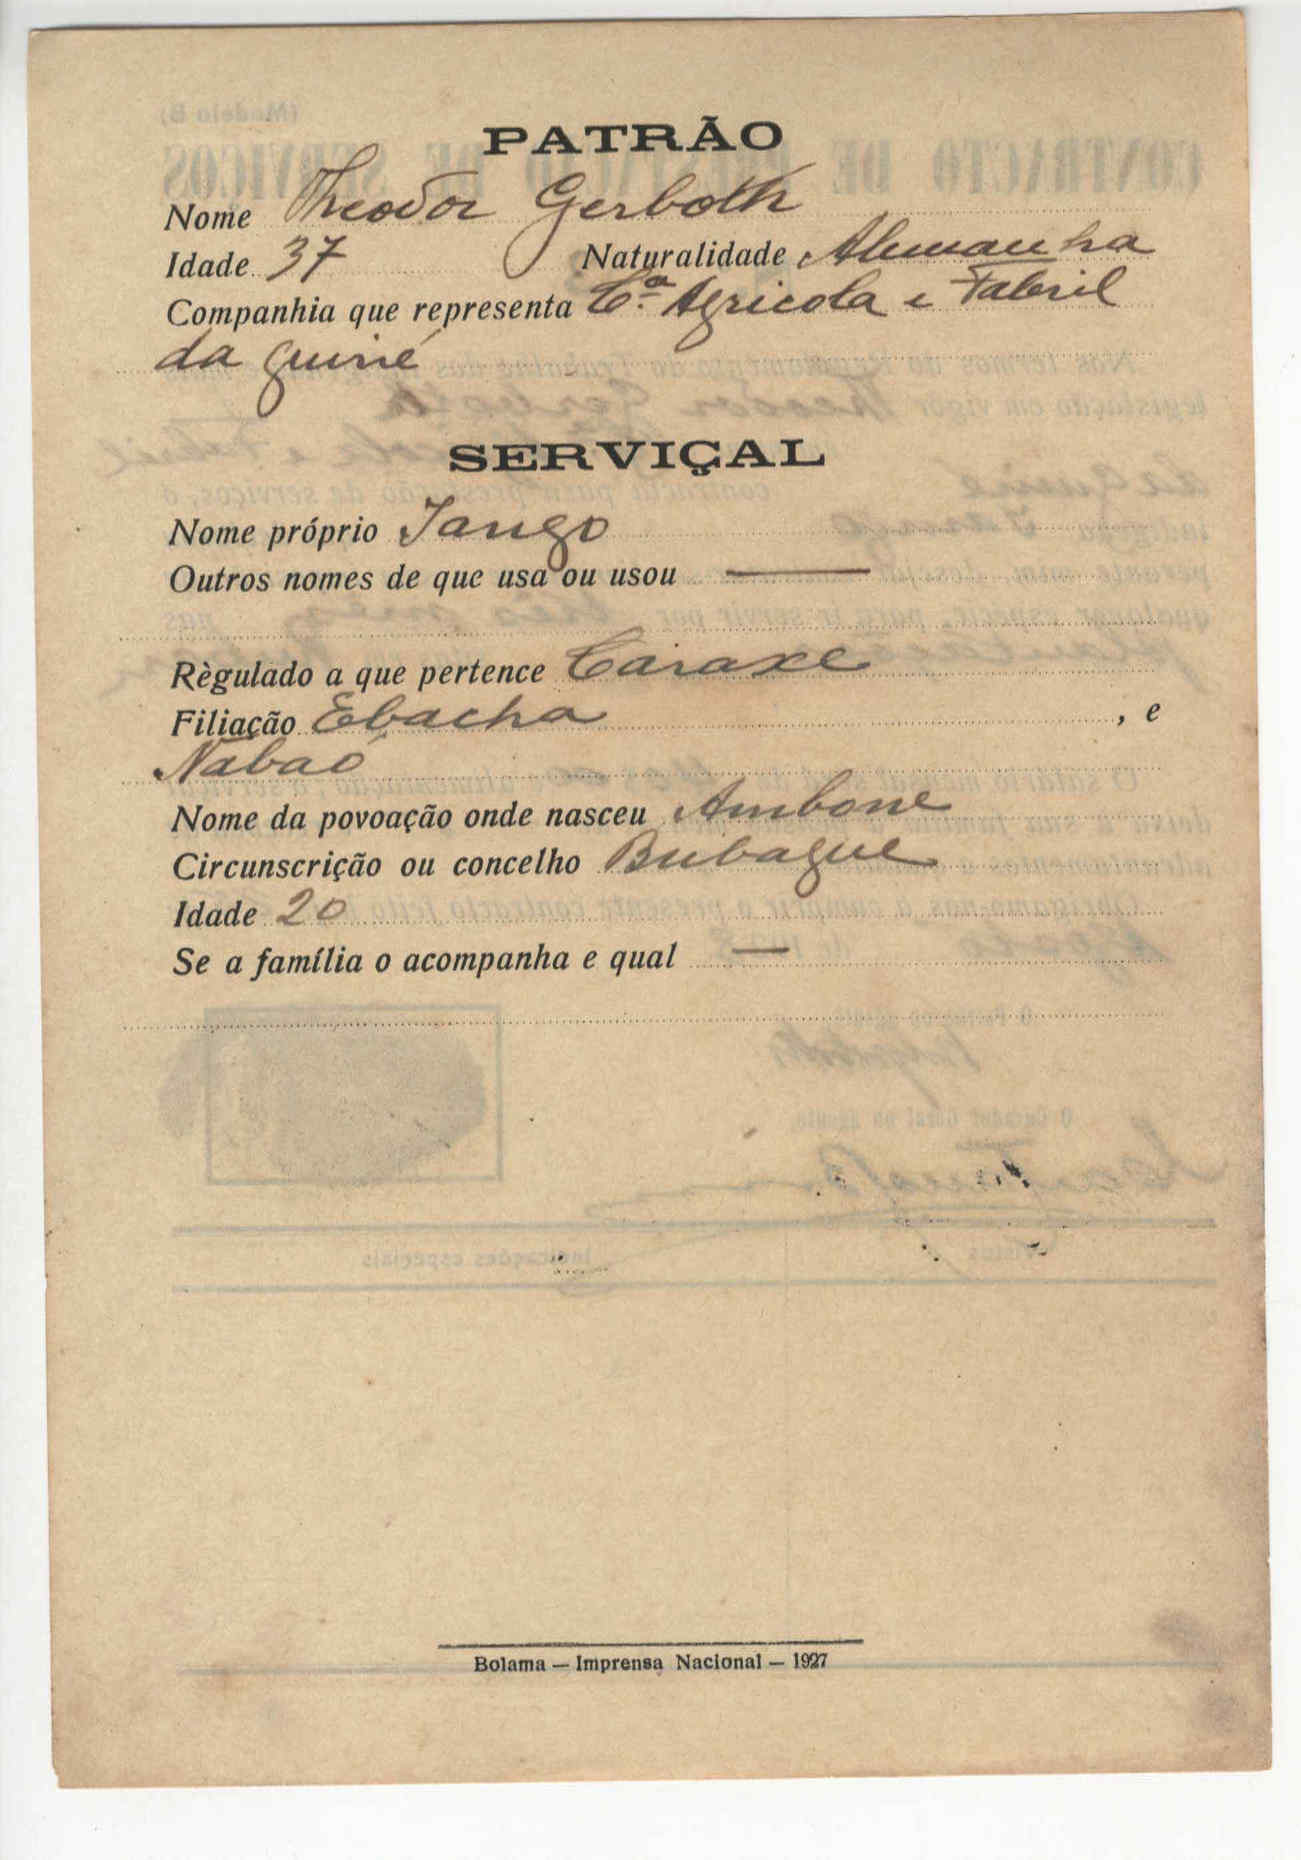 PATRÃO
Nome Theodor Gerboth
Idade 37 Naturalidade Alemanha
Companhia que representa Cª Agricola e Fabril
da Guiné
SERVIÇAL
Nome próprio Iango
Outros nomes de que usa ou usou —
Règulado a que pertence Caraxe
Filiação Ebacha, e
Nabaó
Nome da povoação onde nasceu Ambone
Circunscrição ou concelho Bubaque
Idade 20
Se a família o acompanha e qual —
Bolama — Imprensa Nacional — 1927